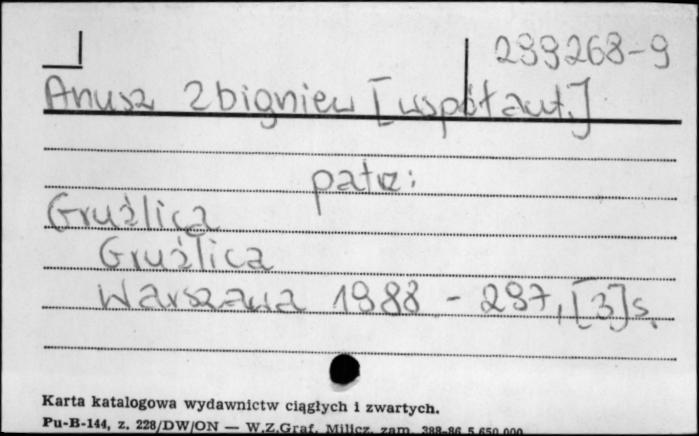 299268-9
Anusz Zbigniew [współaut.]
patrz:
Gruźlica
Gruźlica
Warszawa 1988 - 297, [3] s.
Karta katalogowa wydawnictw ciągłych i zwartych.
Pu-B-144, z. 228/DW/ON — W.Z.Graf. Milicz, zam. 388-86 5.650.000